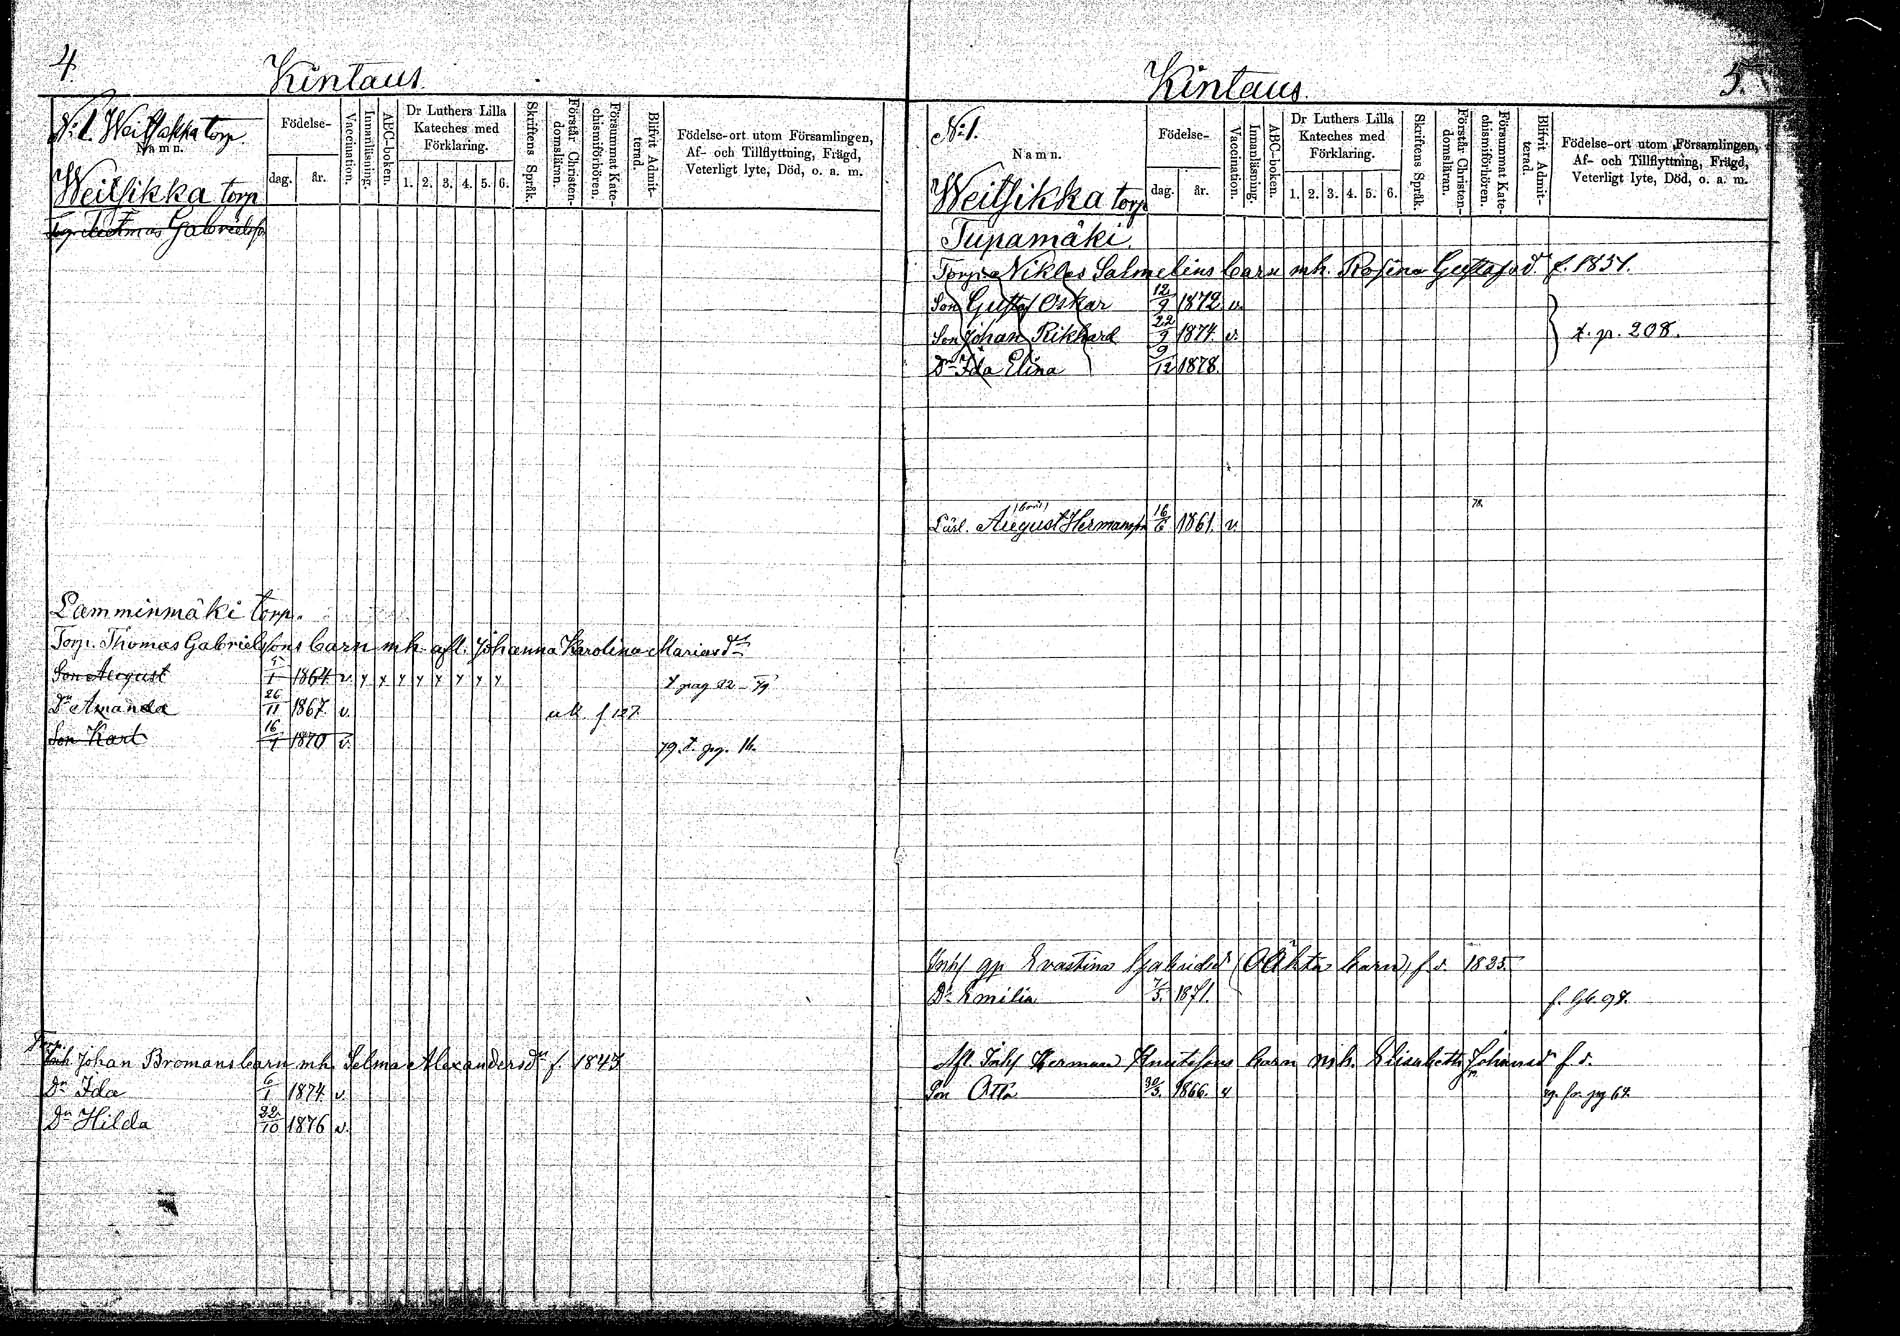 4.
Kintaus.
No 1. Weitsikka torp.
Namn.
Weitsikka torp
Födelse-
dag.
år.
Vaccination.
Innanläsning.
ABC-boken.
Dr Luthers Lilla
Kateches med
Förklaring.
1. 2. 3. 4. 5. 6.
Skriftens Språk.
Förstår Christen-
domsläran.
Försummat Kate-
chismiförhören.
Blifvit Admit-
terad.
Födelse-ort utom Församlingen,
Af- och Tillflyttning, Frägd,
Veterligt lyte, Död, o. a. m.
Thomas Gabrielss
Lamminmäki torp.
Torp. Thomas Gabrielssons barn mh. afl. Johanna Karolina Mariasdr
Son August 5/1 1864 v. x x x x x x x x
Dr Amanda 26/11 1867. v. f 127.
Son Karl 16/1 1870 v. 79. t. pg. 16.
Torp.
Inh Johan Bromans barn mh. Selma Alexandersdr f. 1843
Dr Ida 6/1 1874 v.
Dr Hilda 22/10 1876 v.
5.
Kintaus.
No 1.
Namn.
Weitsikka torp
Födelse-
dag.
år.
Vaccination.
Innanläsning.
ABC-boken.
Dr Luthers Lilla
Kateches med
Förklaring.
1. 2. 3. 4. 5. 6.
Skriftens Språk.
Förstår Christen-
domsläran.
Försummat Kate-
chismiförhören.
Blifvit Admit-
terad.
Födelse-ort utom Församlingen,
Af- och Tillflyttning, Frägd,
Veterligt lyte, Död, o. a. m.
Tupamäki.
Torp. Niklas Salmelins barn mh. Rosina Gustafsdr f. 1851.
Son Gustaf Oskar 12/9 1872 v.
Son Johan Rikhard 22/9 1874. v. t. p. 208.
Dr Ida Elina 9/12 1878.
78.
Lärl. August Hermanss 16/6 1861. v.
Inhs gp Evastina Gabrielsd barn) f. d. 1835.
Dr Emilia 7/5. 1871.
Afl. Inhs Herman Knutssons barn mh. Elisabeth Johansd f. d.
Son Otto 30/3. 1866. v